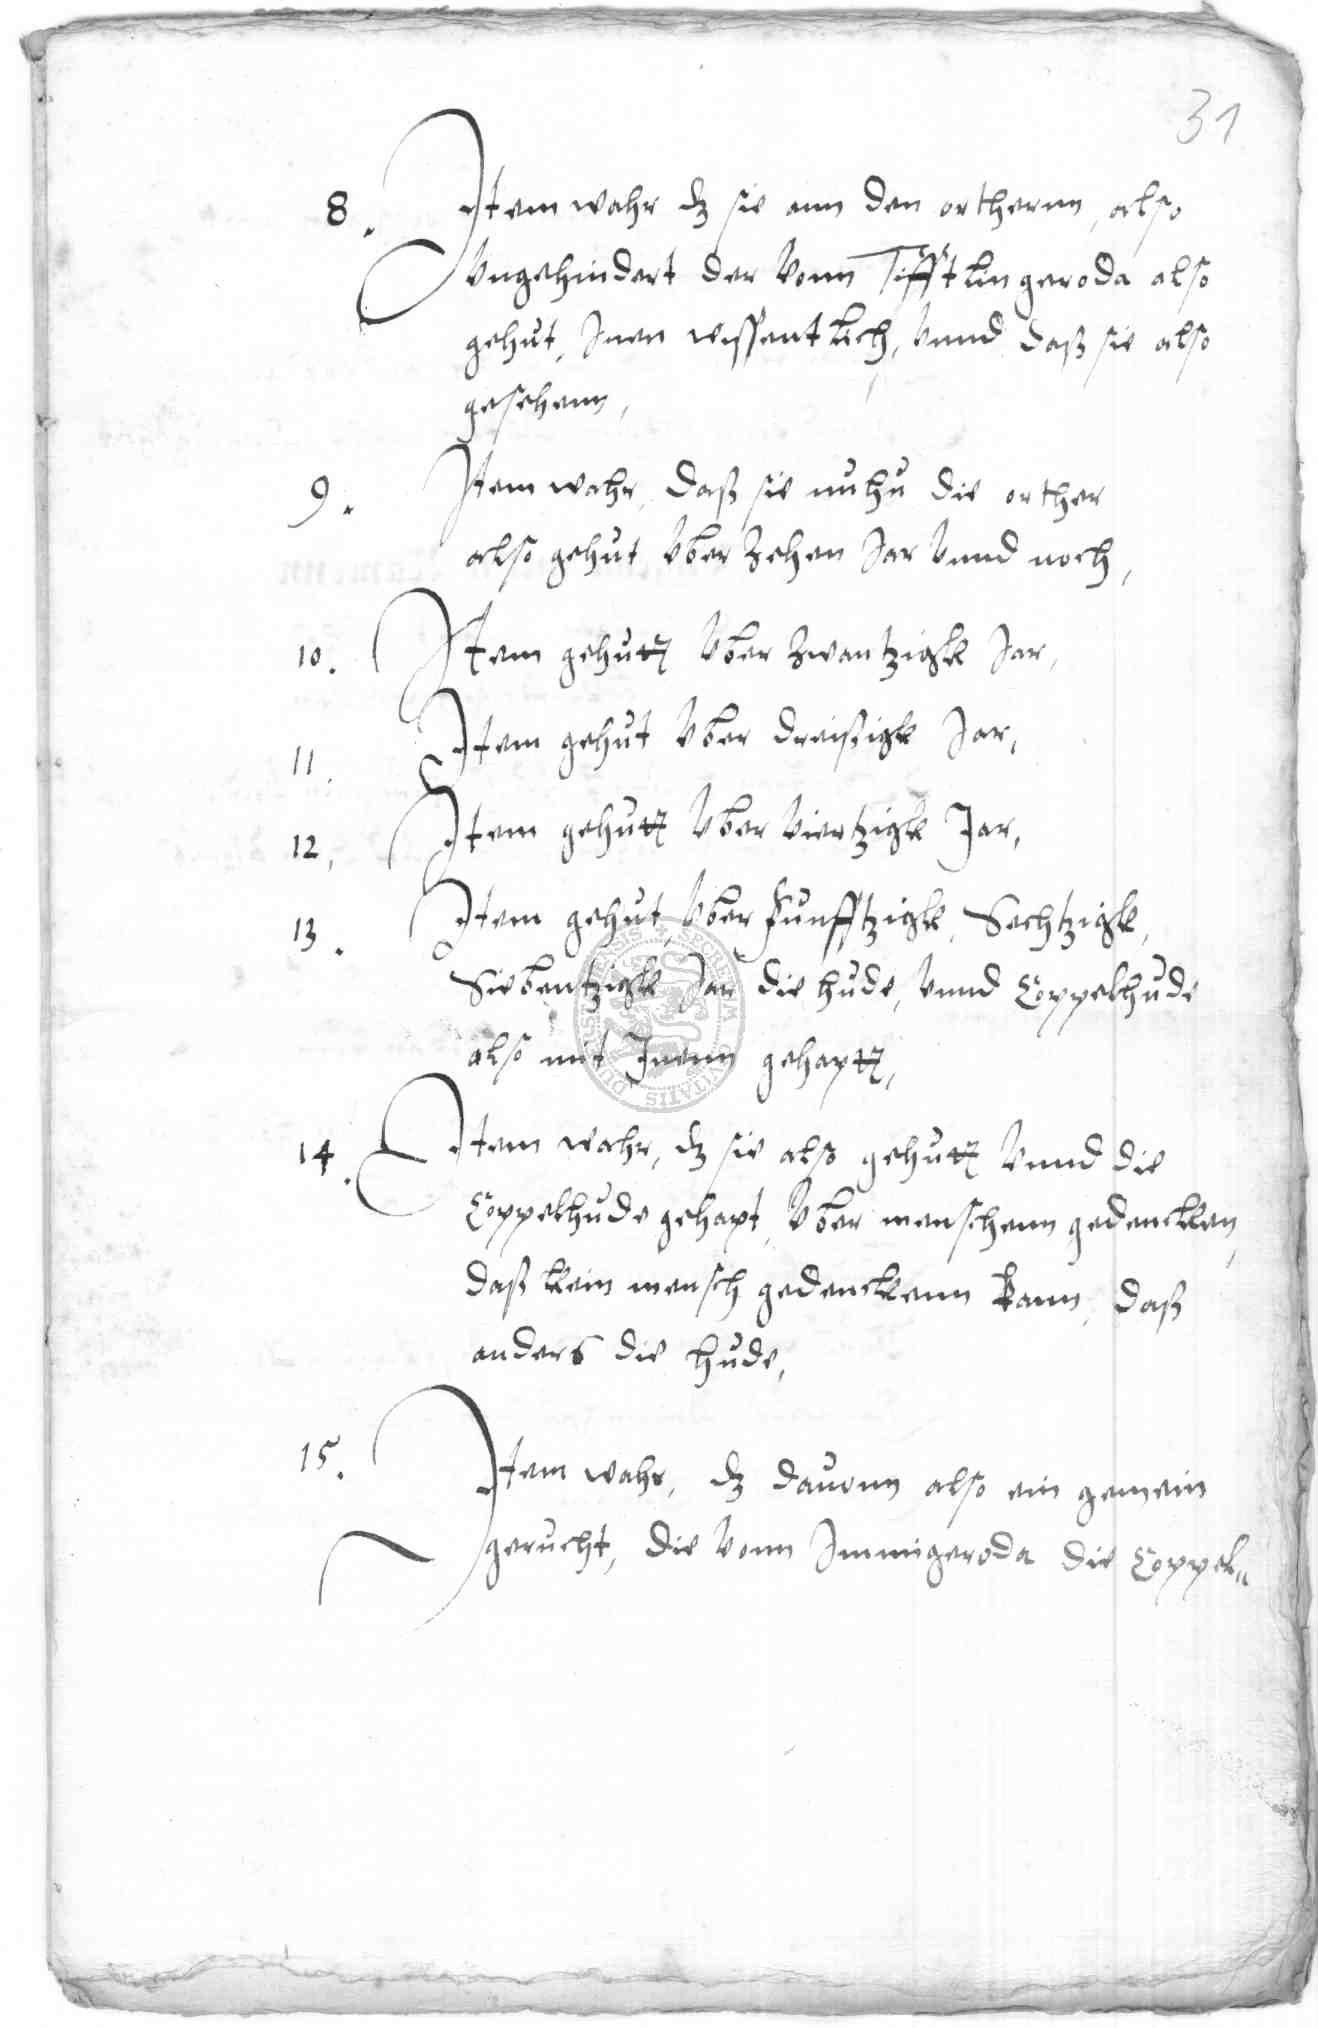 31
8. Item wahr dz sie ann den orthernn, also
Vngehindert der Vonn Tifftlingeroda also
gehut, Inen wissentlich, Vnnd daß sie also
gesehenn,
9. Item wahr, daß sie nuhu die orther
also gehut Vber Zehen Jar Vnnd noch,
10. Item gehutt Vber Zwantzigk Jar,
11. Item gehut Vber dreissigk Jar,
12. Item gehutt Vber Viertzigk Jar,
13. Item gehut, Vber funfftzigk, Sechtzigk,
Siebentzigk Jar die hude, Vnnd Coppelhude
also mit Inenn gehaptt,
14. Item wahr, dz sie also gehutt Vnnd die
Coppelhude gehapt, Vber menschenn gedencken,
daß kein mensch gedenckenn kann, daß
anders die hude,
15. Item wahr, dz dauonn also ein gemein
gerucht, die Vonn Immigeroda die Coppel„
SECRETUM CIVITATIS